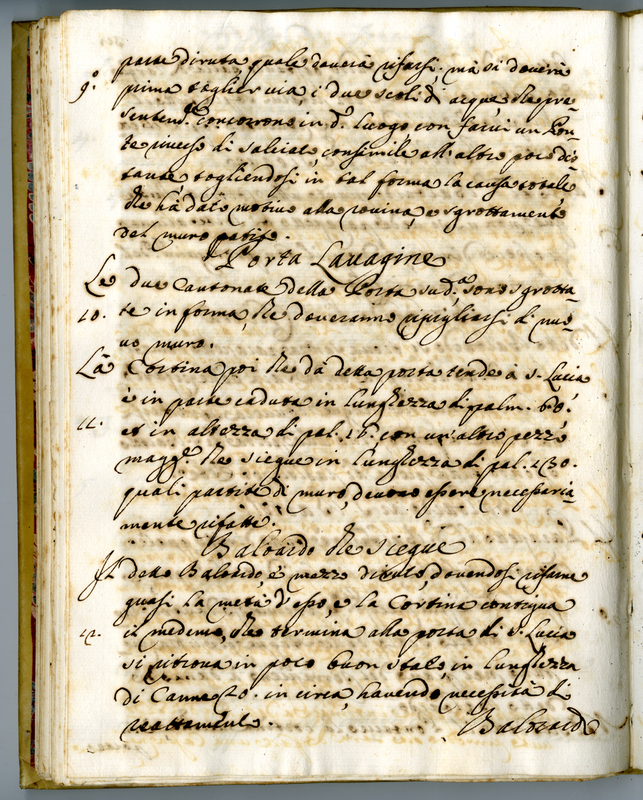 parte diruta, quale doverà rifarsi; mà si doverà
9.º prima toglier via, i due scoli di acque, che pre-
sentem.te concorrono in d.º luogo, con farvi un Pon-
te riverso di salciato, consimile all'altro poco dis-
tante, togliendosi in tal forma la causa totale
che hà dato motivo alla rovina, e sgrottamento
del muro patito.
Porta Lavagine
Le due Cantonate della Porta sud.ª sono sgrotta-
10. te in forma, che doveranno ripigliarsi di nuo-
vo muro.
La Cortina poi che dà detta porta tende à S. Lucia
è in parte caduta in lunghezza di palm. 60.
11. et in altezza di pal. 16. con un'altro pezzo
magg.e che siegue in lunghezza di pal. 130.
quali partite di muro, devono essere necessaria-
mente rifatte.
Baloardo che siegue
Il detto Baloardo, è mezzo diruto, dovendosi rifarne
quasi la metà d'esso, e la Cortina contigua
12. il medemo, che termina alla porta di S. Lucia
si ritrova in poco buon stato, in lunghezza
di Canne 20. in circa, havendo necessità di
reattamento.
Baloardo